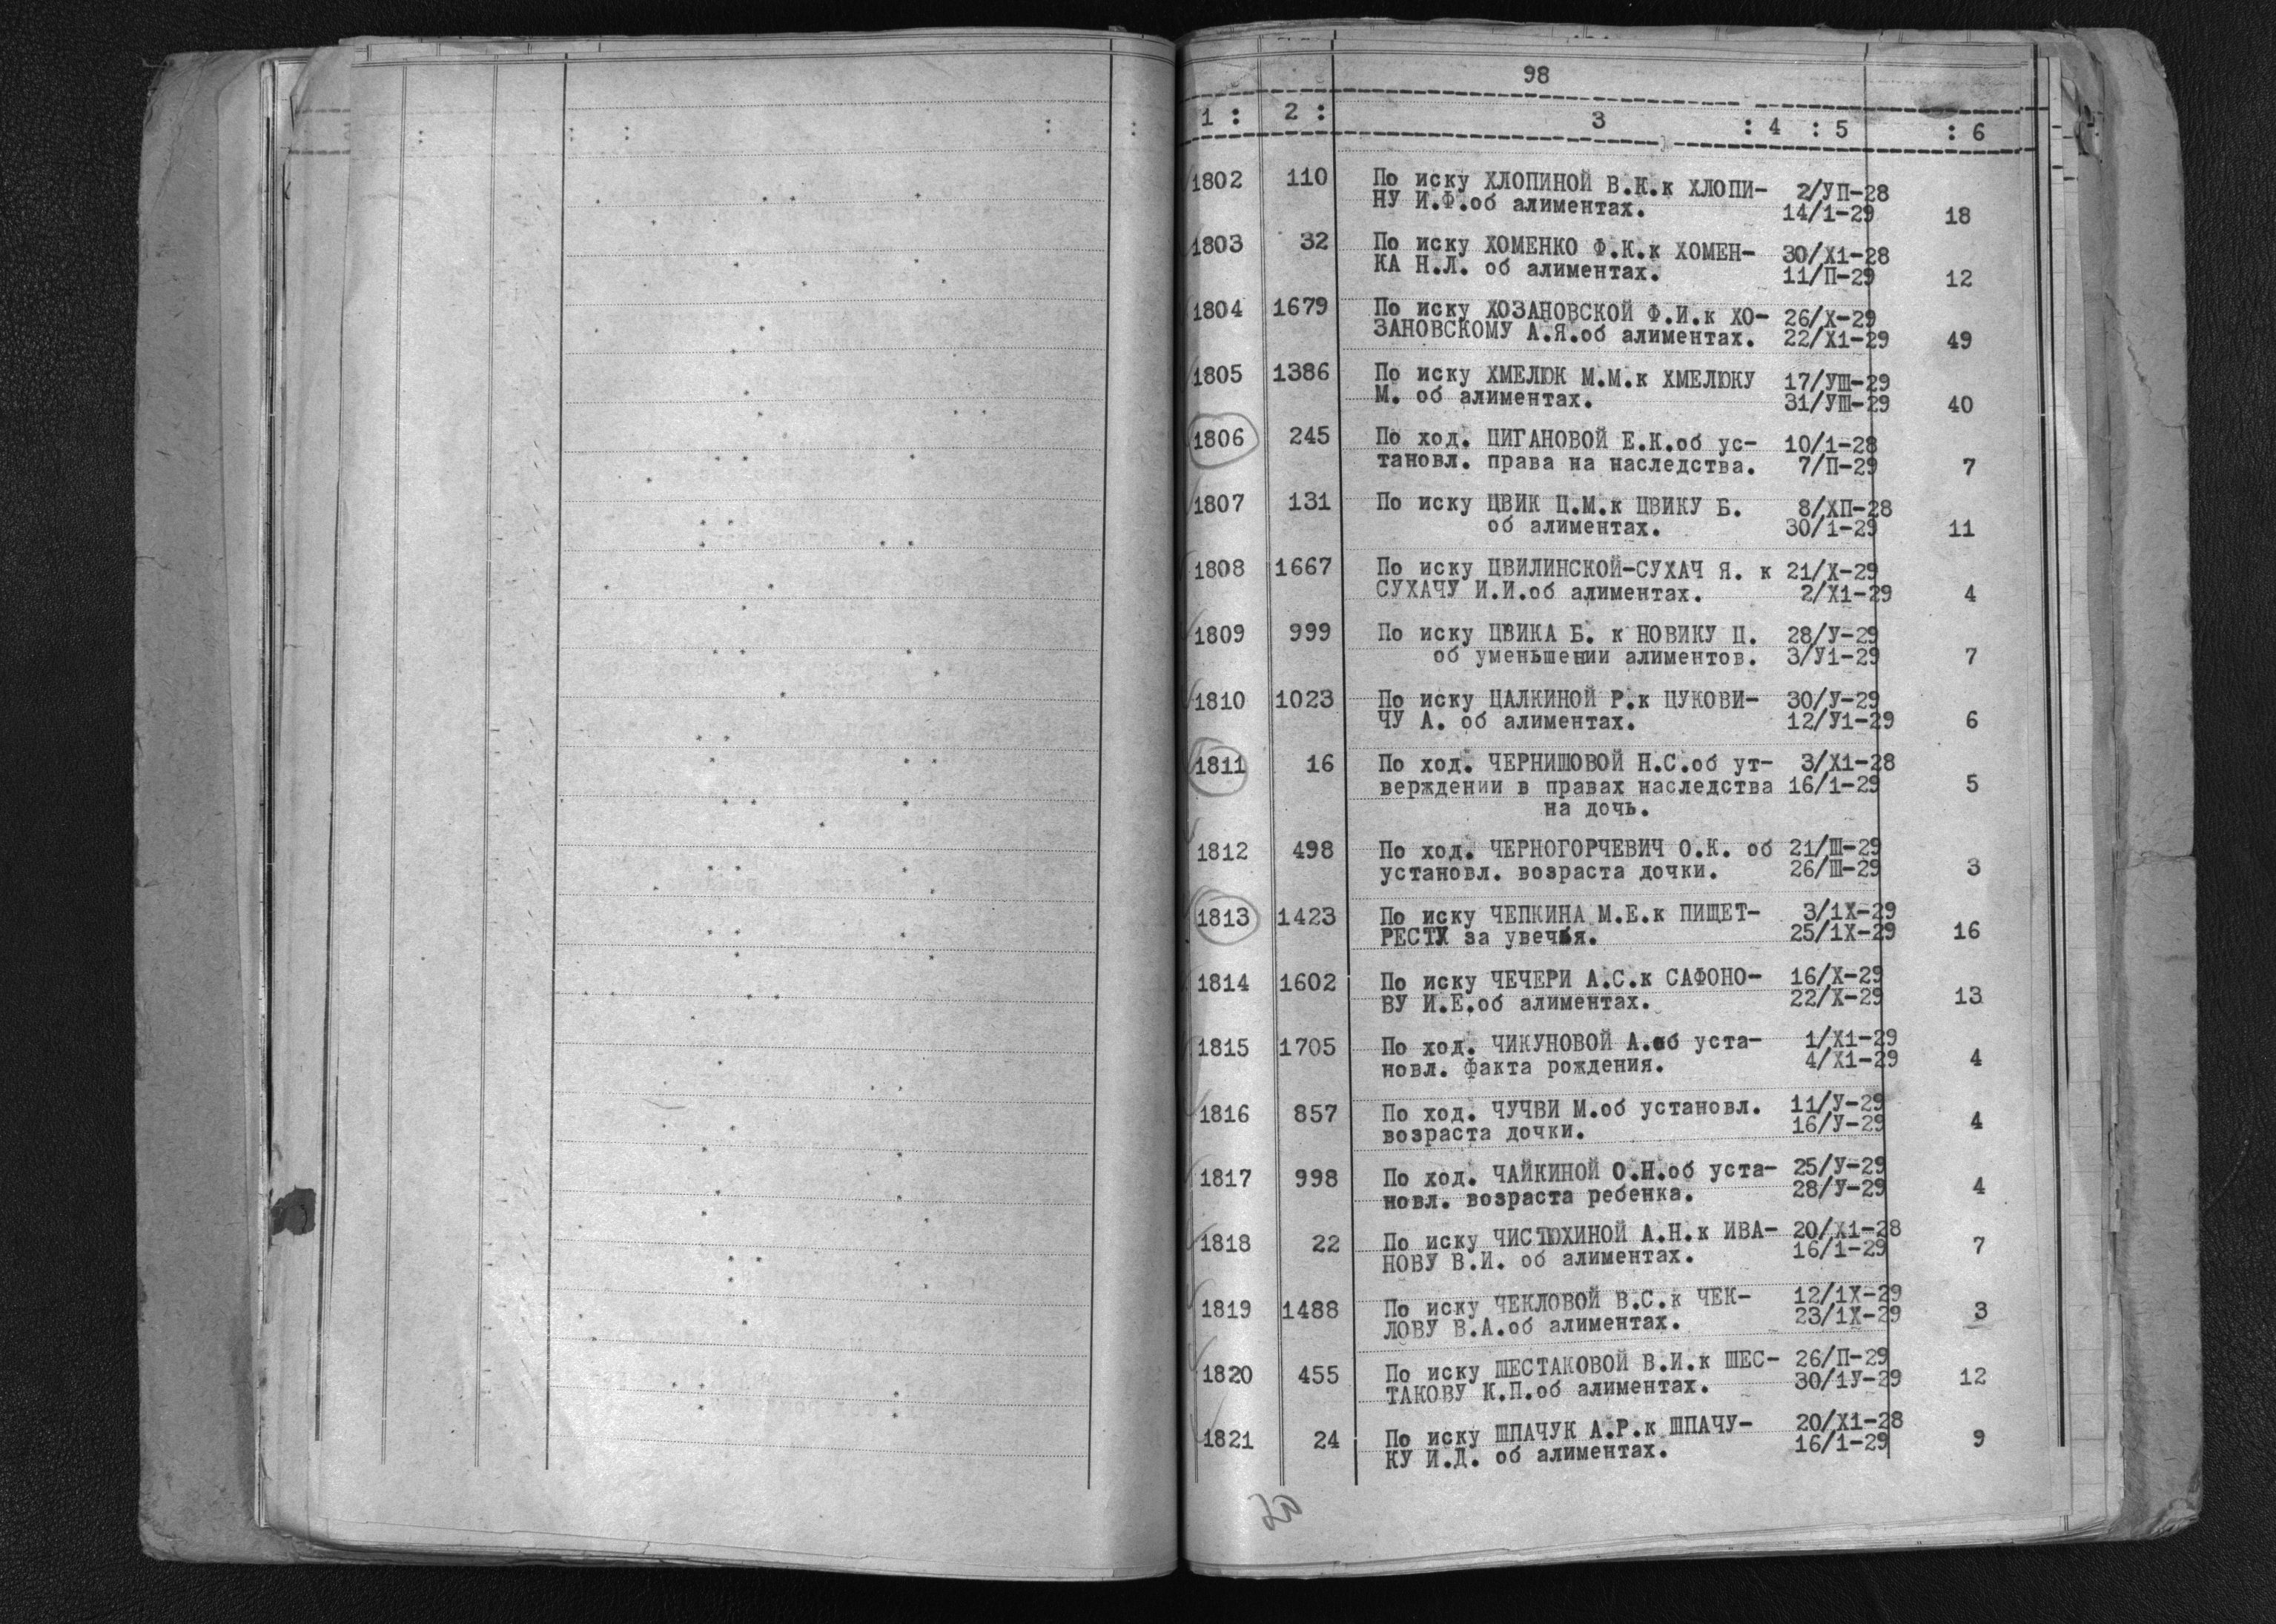 98
1 : 2 : 3 : 4 : 5 : 6
1802 110 По иску ХЛОПИНОЙ В.К.к ХЛОПИ- 2/УП-28
НУ И.Ф.об алиментах. 14/1-29 18
1803 32 По иску ХОМЕНКО Ф.К.к ХОМЕН- 30/Х1-28
КА Н.Л. об алиментах. 11/П-29 12
1804 1679 По иску ХОЗАНОВСКОЙ Ф.И.к ХО- 26/Х-29
ЗАНОВСКОМУ А.Я.об алиментах. 22/Х1-29 49
1805 1386 По иску ХМЕЛЮК М.М.к ХМЕЛЮКУ 17/УШ-29
М. об алиментах. 31/УШ-29 40
1806 245 По ход. ЦИГАНОВОЙ Е.К.об ус- 10/1-28
тановл. права на наследства. 7/П-29 7
1807 131 По иску ЦВИК Ц.М.к ЦВИКУ Б. 8/ХП-28
об алиментах. 30/1-29 11
1808 1667 По иску ЦВИЛИНСКОЙ-СУХАЧ Я. к 21/Х-29
СУХАЧУ И.И.об алиментах. 2/Х1-29 4
1809 999 По иску ЦВИКА Б. к НОВИКУ Ц. 28/У-29
об уменьшении алиментов. 3/У1-29 7
1810 1023 По иску ЦАЛКИНОЙ Р.к ЦУКОВИ- 30/У-29
ЧУ А. об алиментах. 12/У1-29 6
1811 16 По ход. ЧЕРНИШОВОЙ Н.С.об ут- 3/Х1-28
верждении в правах наследства 16/1-29 5
на дочь.
1812 498 По ход. ЧЕРНОГОРЧЕВИЧ О.К. об 21/Ш-29
установл. возраста дочки. 26/Ш-29 3
1813 1423 По иску ЧЕПКИНА М.Е.к ПИЩЕТ- 3/1Х-29
за увечья. 25/1Х-29 16
1814 1602 По иску ЧЕЧЕРИ А.С.к САФОНО- 16/Х-29
ВУ И.Е.об алиментах. 22/Х-29 13
1815 1705 По ход. ЧИКУНОВОЙ А.об уста- 1/Х1-29
новл. факта рождения. 4/Х1-29 4
1816 857 По ход. ЧУЧВИ М.об установл. 11/У-29
возраста дочки. 16/У-29 4
1817 998 По ход. ЧАЙКИНОЙ О.Н.об уста- 25/У-29
новл. возраста ребенка. 28/У-29 4
1818 22 По иску ЧИСТЮХИНОЙ А.Н.к ИВА- 20/Х1-28
НОВУ В.И. об алиментах. 16/1-29 7
1819 1488 По иску ЧЕКЛОВОЙ В.С.к ЧЕК- 12/1Х-29
ЛОВУ В.А.об алиментах. 23/1Х-29 3
1820 455 По иску ШЕСТАКОВОЙ В.И.к ШЕС- 26/П-29
ТАКОВУ К.П.об алиментах. 30/1У-29 12
1821 24 По иску ШПАЧУК А.Р.к ШПАЧУ- 20/Х1-28
КУ И.Д. об алиментах. 16/1-29 9